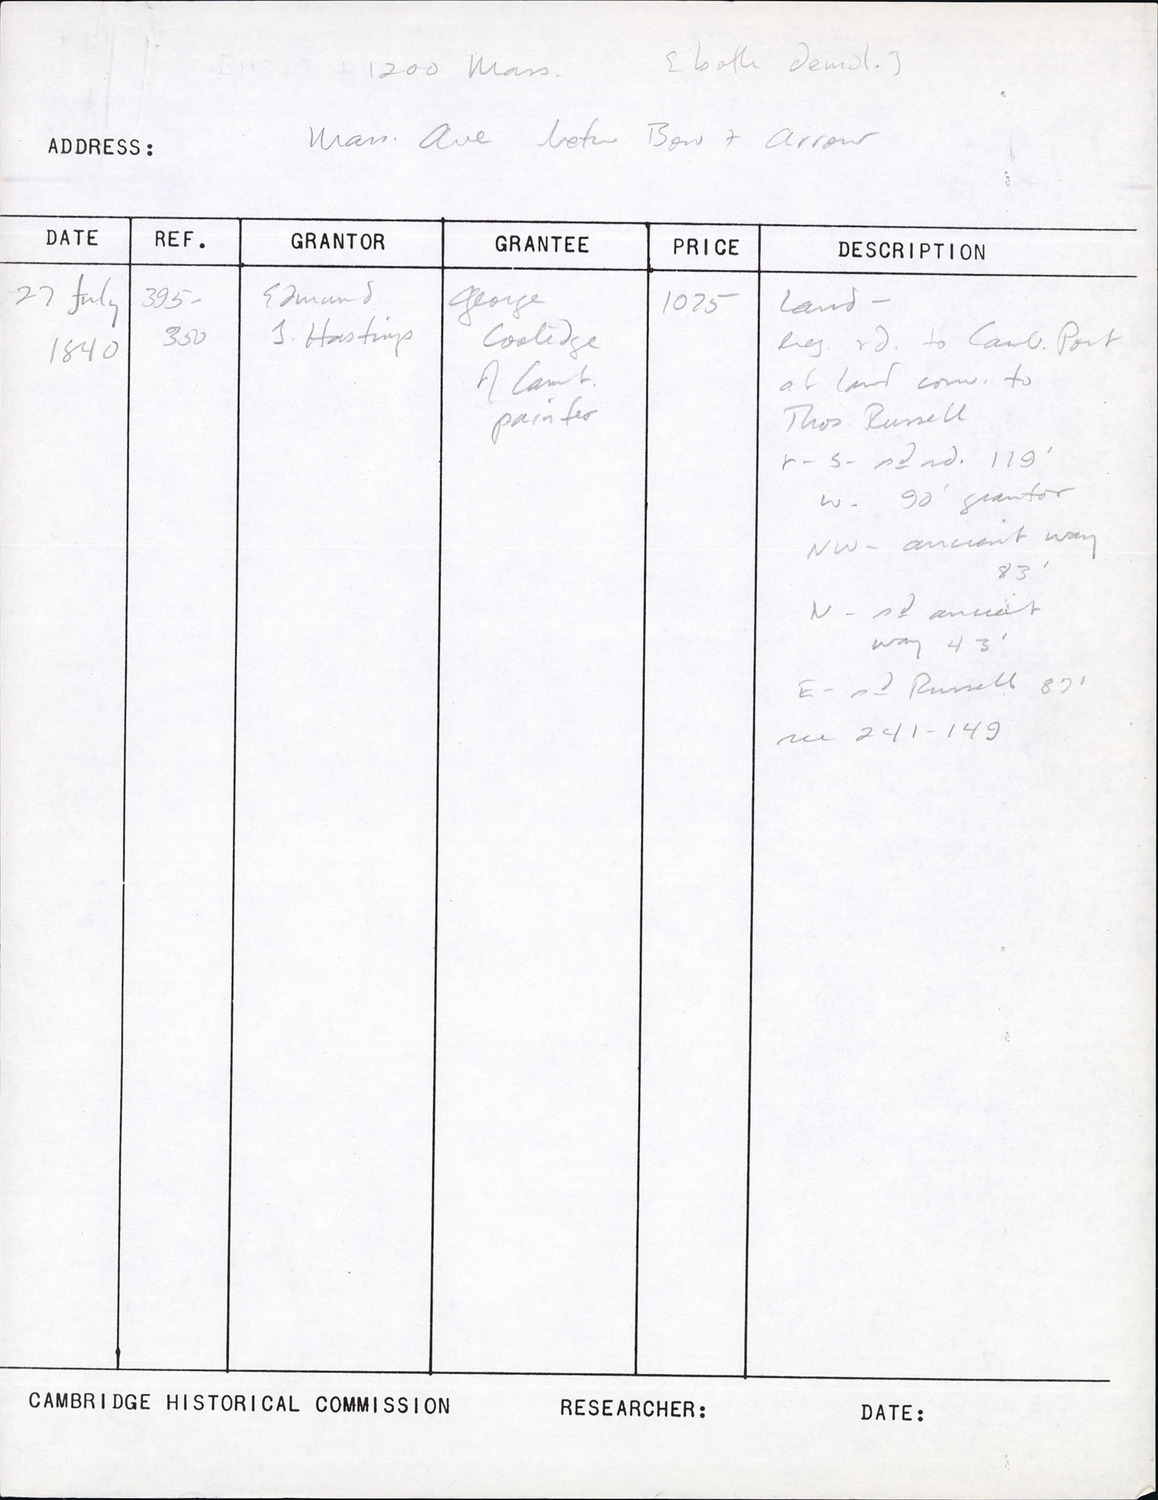 + 1200 Mass. [both demol.]
ADDRESS: Mass. Ave betw Bow + Arrow
DATE REF. GRANTOR GRANTEE PRICE DESCRIPTION
27 July 395- Edmund George 1025 Land -
1840 350 T. Hastings Coolidge beg. rd. to Camb. Port
of Camb. at land conv. to
painter Thos. Russell
r- S- sd rd. 119'
W- 90' grantor
NW- ancient way
83'
N- sd ancient
way 43'
E- sd Russell 87'
see 241-149
CAMBRIDGE HISTORICAL COMMISSION RESEARCHER: DATE: